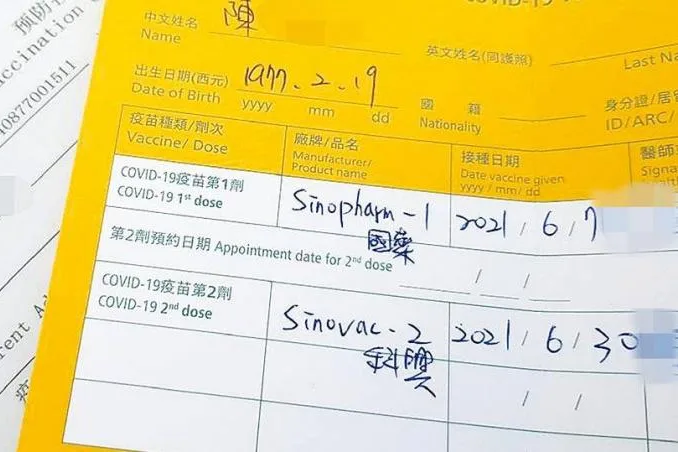 預防接
ccination C
40877001511
rent Ad
COVID-19 V
中文姓名 陳
Name
英文姓名(同護照)
Last Na
出生日期(西元) 1977. 2. 19
Date of Birth yyyy mm dd
國 籍
Nationality
身分證/居留
ID/ARC/
疫苗種類/劑次
Vaccine/ Dose
廠牌/品名
Manufacturer/
Product name
接種日期
Date vaccine given
yyyy / mm/ dd
醫師
Signa
COVID-19疫苗第1劑
COVID-19 1st dose
Sinopharm-1
國藥
2021 / 6 / 7
第2劑預約日期 Appointment date for 2nd dose / /
COVID-19疫苗第2劑
COVID-19 2nd dose
Sinovac-2
科興
2021 / 6 / 30
/ /